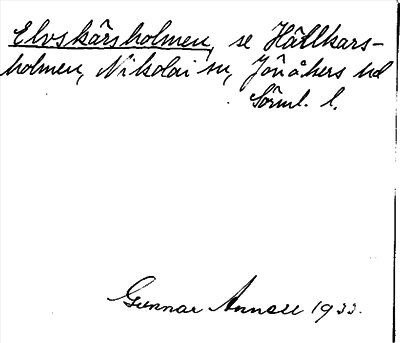 Elvskärsholmen, se Hällkars-
holmen, Nikolai sn, Jönåkers hd
Sörml. l.
Gunnar Annell 1933.